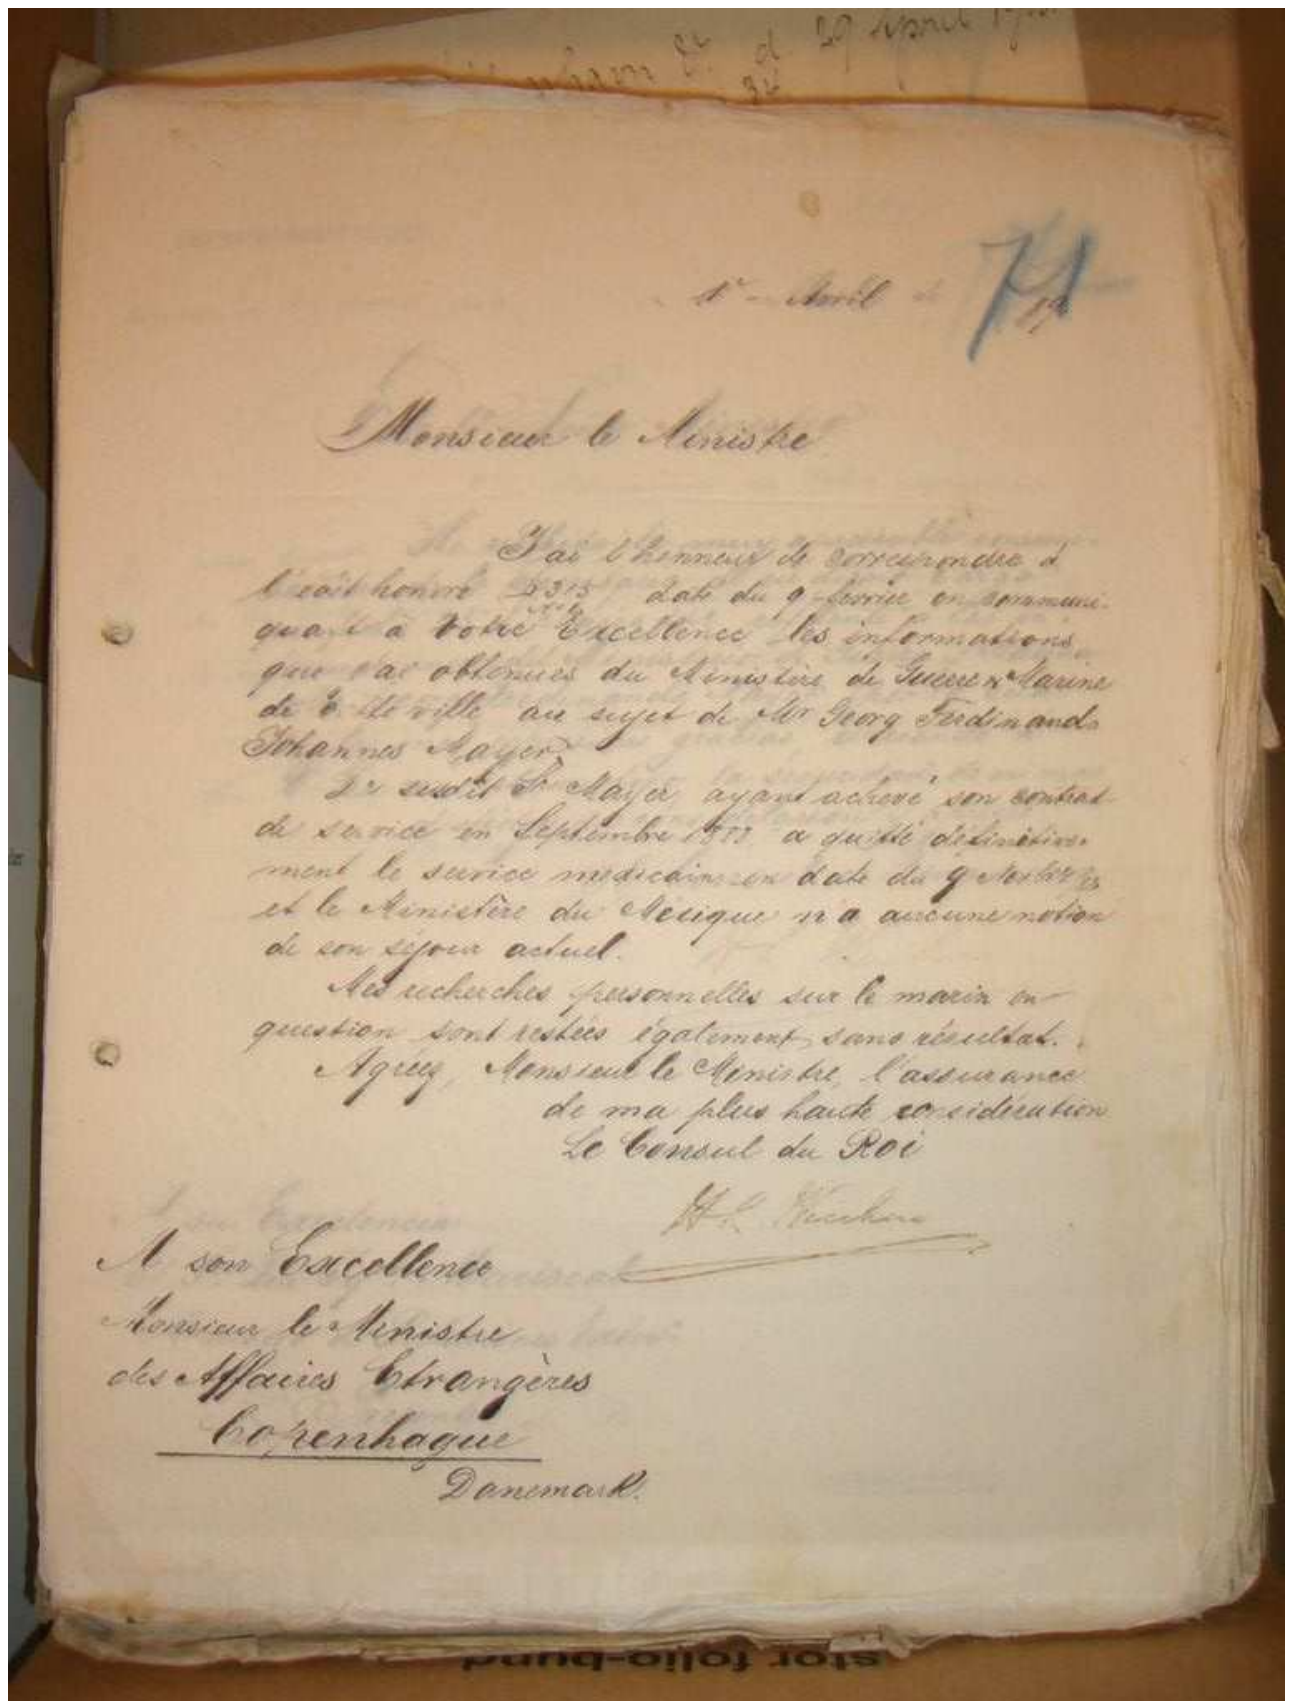 d. 29 April
34
1r Avril
71
Monsieur le Ministre
J'ai l'honneur de correspondre à
l'écrit honoré 315 daté du 9 ferrier en communi-
quant à Votre Excellence les informations
que j'ai obtenues du Ministère de Guerre & Marine
de ville au sujet de Mr Georg Ferdinand
Johannes Mayer.
Le susdit Sr Mayer, ayant achevé son contrat
de service en Septembre a quitté définitive-
ment le service mexicain en date du 9
et le Ministère du Mexique n'a aucune notion
de son séjour actuel.
Mes recherches personnelles sur le marin en
question sont restées également sans résultat.
Agréez, Monsieur le Ministre, l'assurance
de ma plus haute considération
Le Consul du Roi
A son Excellence
Monsieur le Ministre
des Affaires Etrangères
Copenhague
Danemark.
stor folio-bund